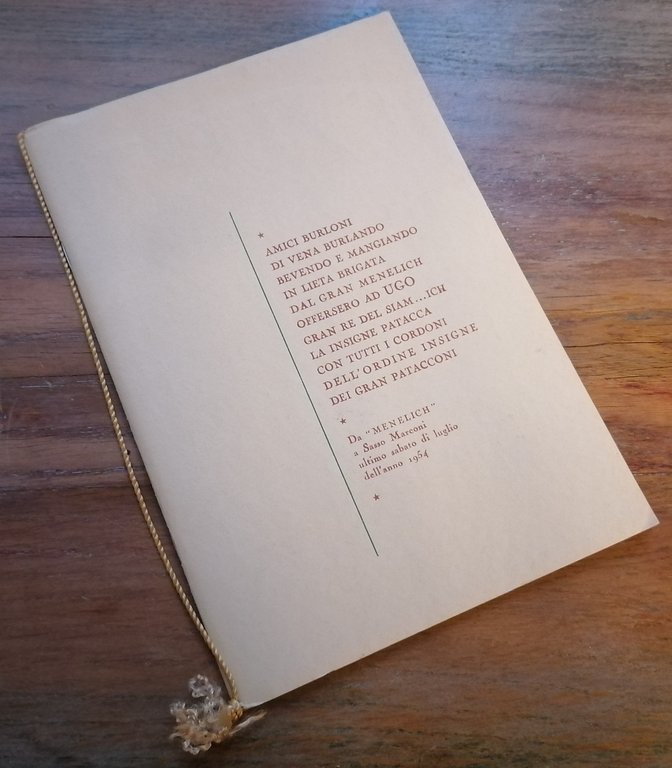 ★
AMICI BURLONI
DI VENA BURLANDO
BEVENDO E MANGIANDO
IN LIETA BRIGATA
DAL GRAN MENELICH
OFFERSERO AD UGO
GRAN RE DEL SIAM...ICH
LA INSIGNE PATACCA
CON TUTTI I CORDONI
DELL'ORDINE INSIGNE
DEI GRAN PATACCONI
★
Da "MENELICH"
a Sasso Marconi
ultimo sabato di luglio
dell'anno 1954
★